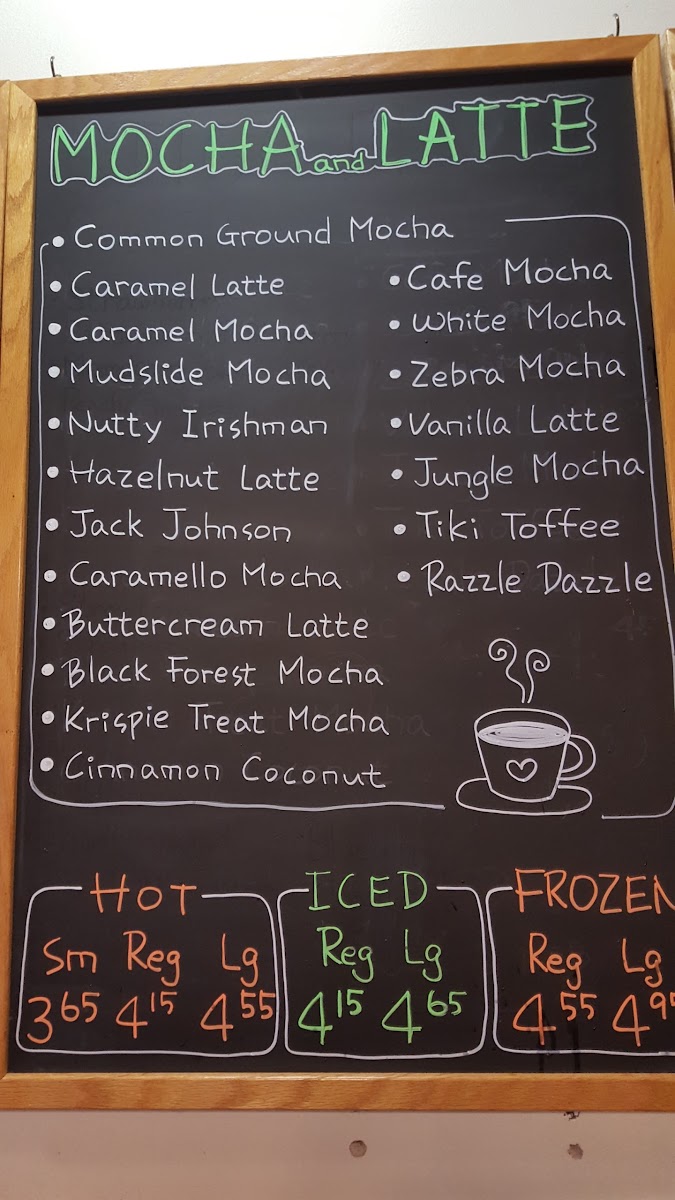 MOCHA and LATTE
• Common Ground Mocha
• Caramel Latte
• Caramel Mocha
• Mudslide Mocha
• Nutty Irishman
• Hazelnut Latte
• Jack Johnson
• Caramello Mocha
• Buttercream Latte
• Black Forest Mocha
• Krispie Treat Mocha
• Cinnamon Coconut
• Cafe Mocha
• White Mocha
• Zebra Mocha
• Vanilla Latte
• Jungle Mocha
• Tiki Toffee
• Razzle Dazzle
HOT
Sm Reg Lg
3 65 4 15 4 55
ICED
Reg Lg
4 15 4 65
FROZEN
Reg Lg
4 55